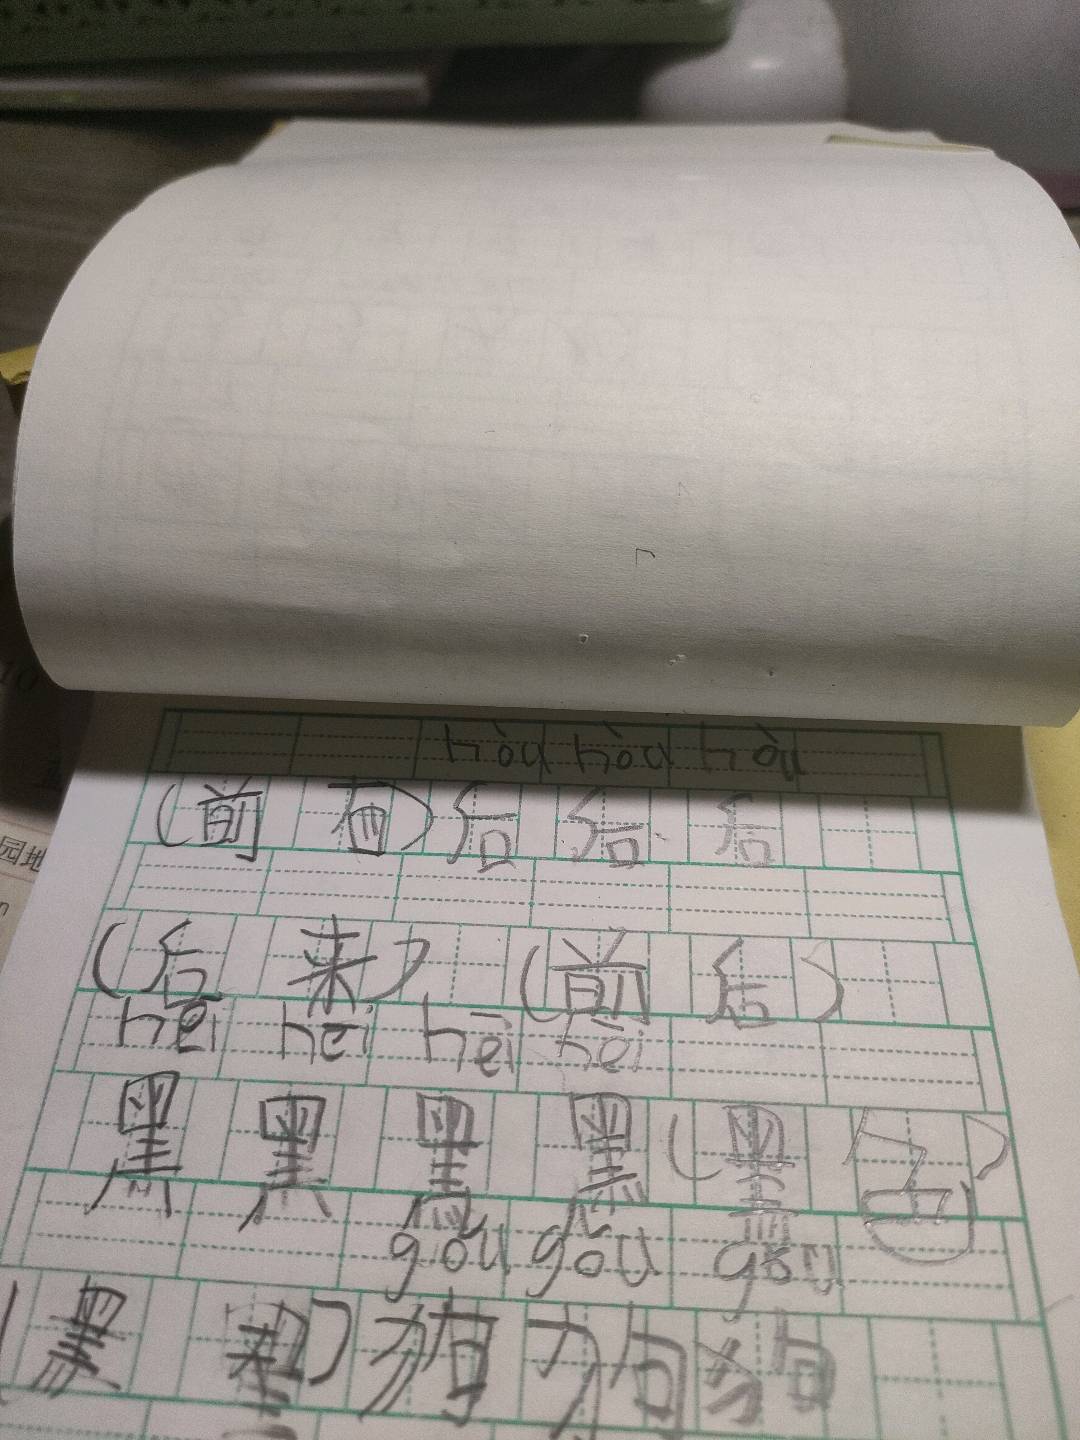 hòu hòu hòu
(前 面) 后 后 后
(后 来) (前 后)
hēi hēi hēi hēi
黑 黑 黑 黑 (黑 色)
gǒu gǒu gǒu
(黑 狗 狗 狗
园地
10